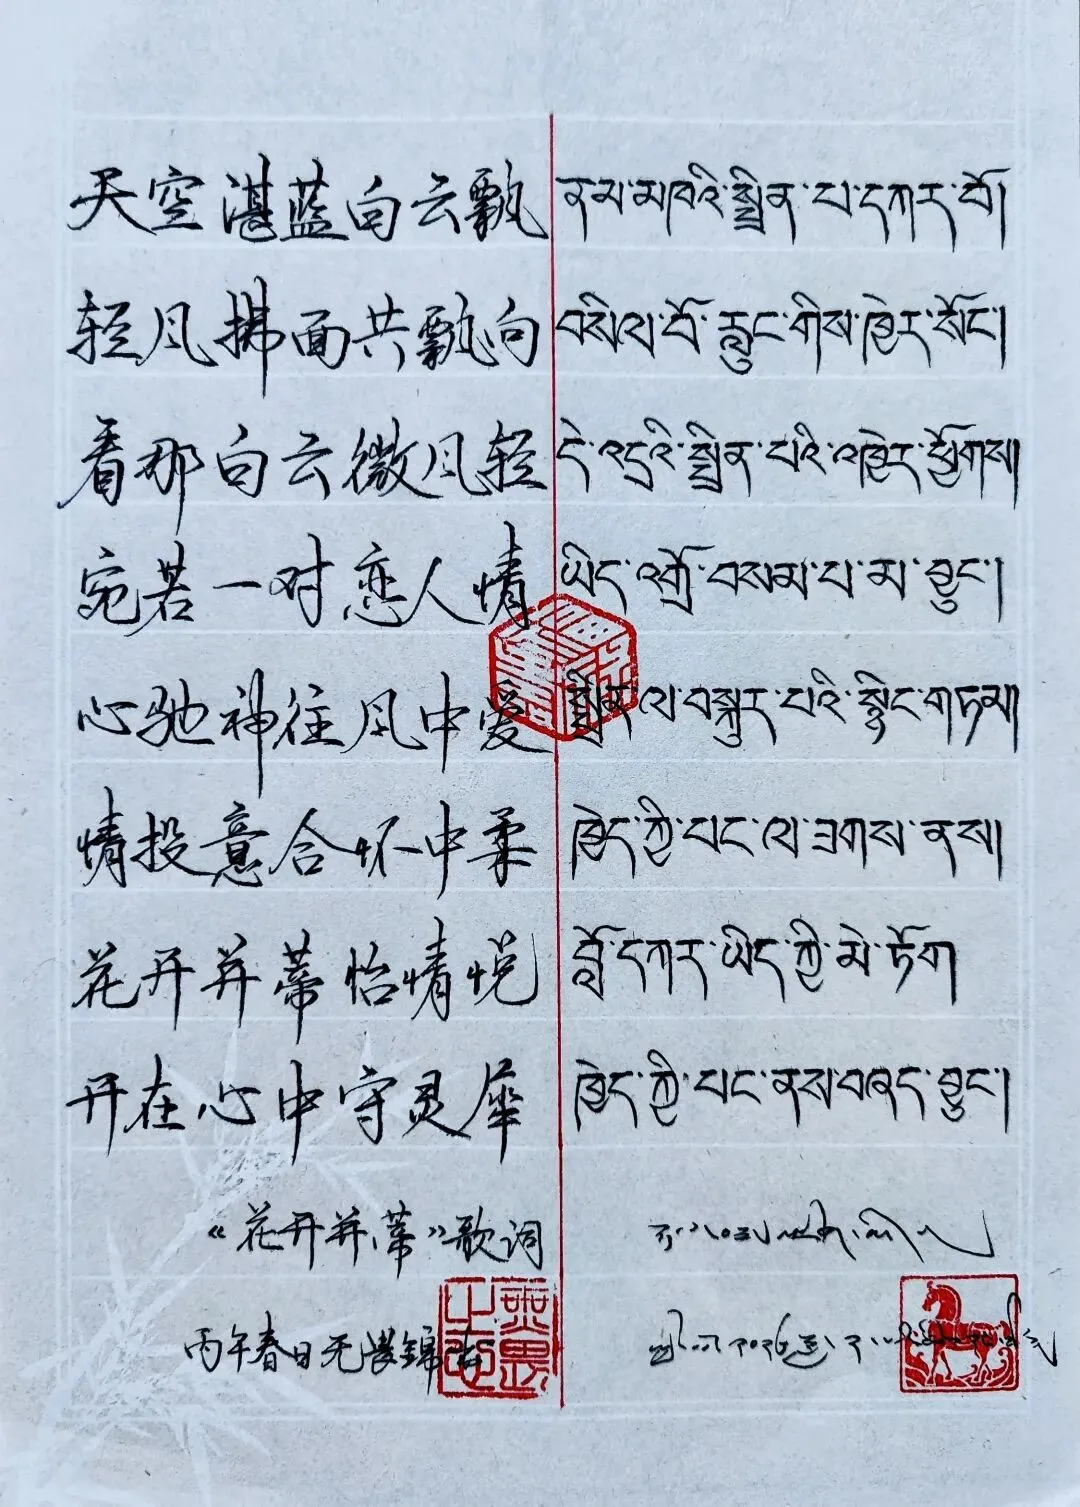 天空湛蓝白云飘
轻风拂面共飘向
看那白云微风轻
宛若一对恋人情
心驰神往风中爱
情投意合怀中柔
花开并蒂怡情悦
开在心中守灵犀
《花开并蒂》歌词
丙午春日无畏锦
ནམ་མཁའི་སྤྲིན་པ་དཀར་པོ།
བསིལ་བོ་རླུང་གིས་ཁྱེར་སོང་།
དེ་འདྲའི་སྤྲིན་པའི་འཁྱེར་ཕྱོགས།
ཡིད་འགྲོ་བསམ་པ་མ་བྱུང་།
སྤྲིན་ལ་བསྐུར་པའི་སྙིང་གཏམ།
ཁྱེད་ཀྱི་པང་ལ་ཟགས་ནས།
བློ་དཀར་ཡིད་ཀྱི་མེ་ཏོག
ཁྱེད་ཀྱི་པང་ནས་བཞད་བྱུང་།